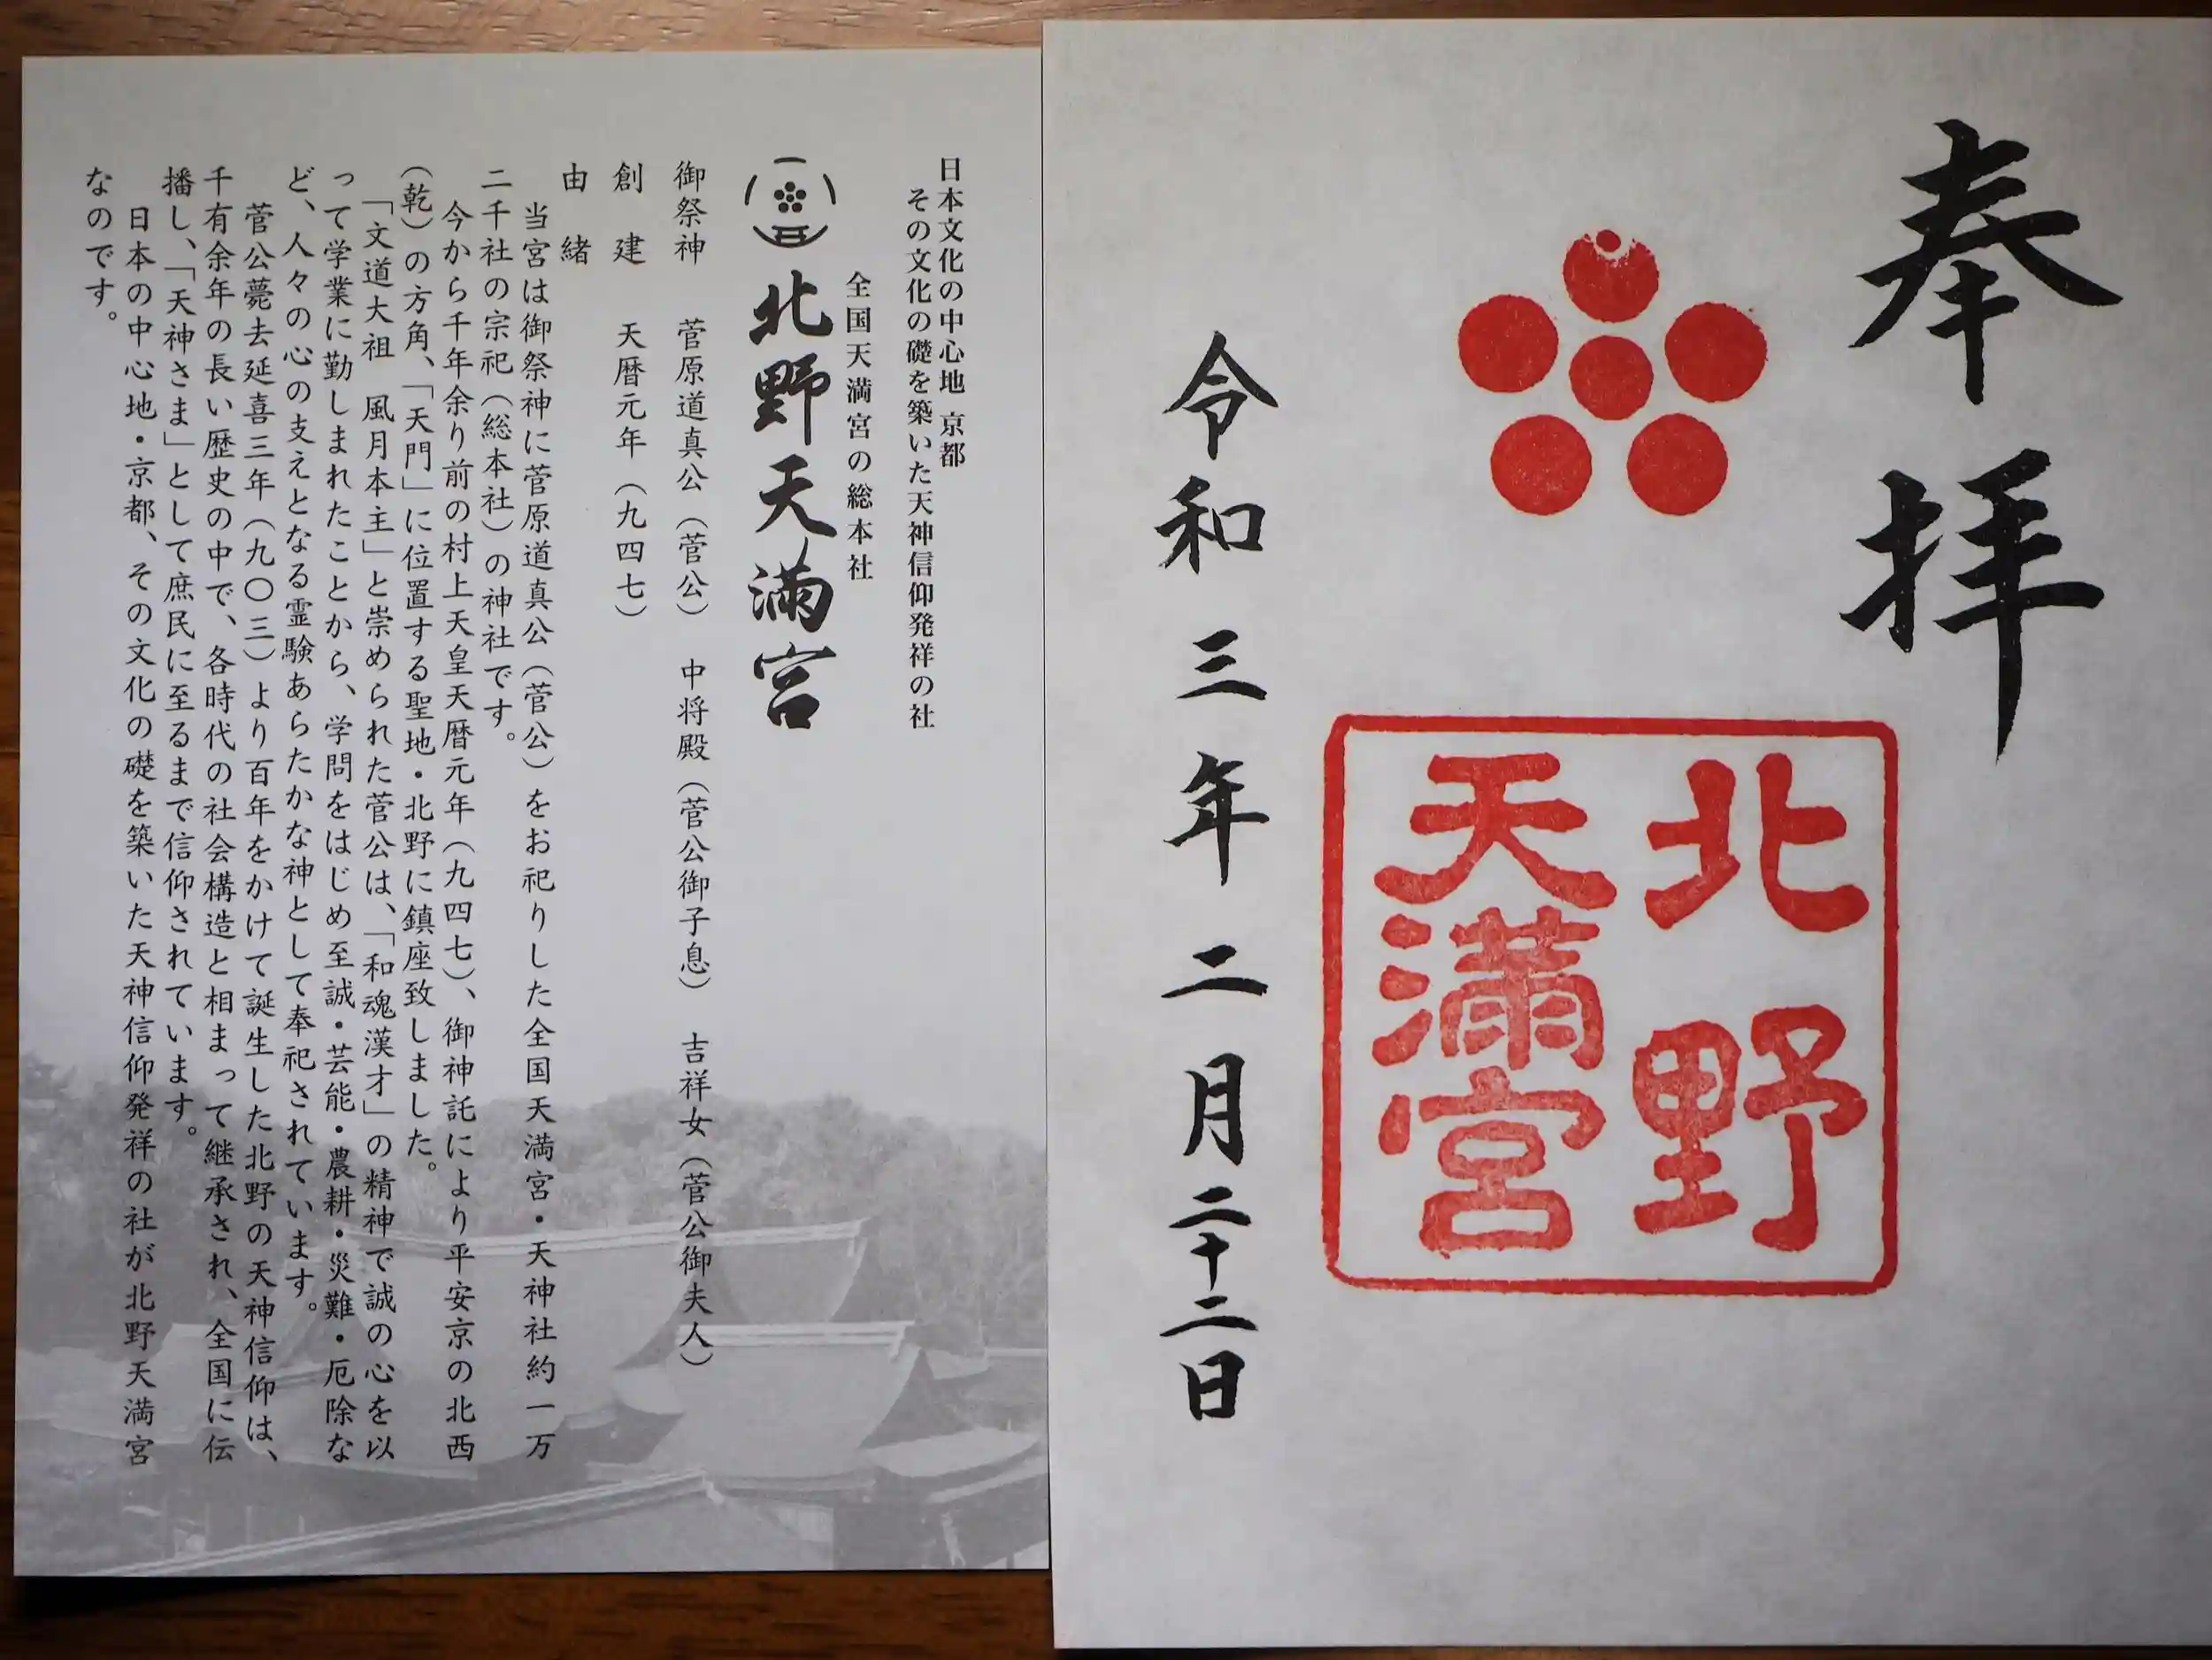 奉拝
北野
天満宮
令和三年二月二十二日
日本文化の中心地 京都
その文化の礎を築いた天神信仰発祥の社
全国天満宮の総本社
北野天満宮
御祭神 菅原道真公（菅公） 中将殿（菅公御子息） 吉祥女（菅公御夫人）
創建 天暦元年（九四七）
由緒
当宮は御祭神に菅原道真公（菅公）をお祀りした全国天満宮・天神社約一万
二千社の宗祀（総本社）の神社です。
今から千年余り前の村上天皇天暦元年（九四七）、御神託により平安京の北西
（乾）の方角、「天門」に位置する聖地・北野に鎮座致しました。
「文道大祖 風月本主」と崇められた菅公は、「和魂漢才」の精神で誠の心を以
って学業に勤しまれたことから、学問をはじめ至誠・芸能・農耕・災難・厄除な
ど、人々の心の支えとなる霊験あらたかな神として奉祀されています。
菅公薨去延喜三年（九〇三）より百年をかけて誕生した北野の天神信仰は、
千有余年の長い歴史の中で、各時代の社会構造と相まって継承され、全国に伝
播し、「天神さま」として庶民に至るまで信仰されています。
日本の中心地・京都、その文化の礎を築いた天神信仰発祥の社が北野天満宮
なのです。